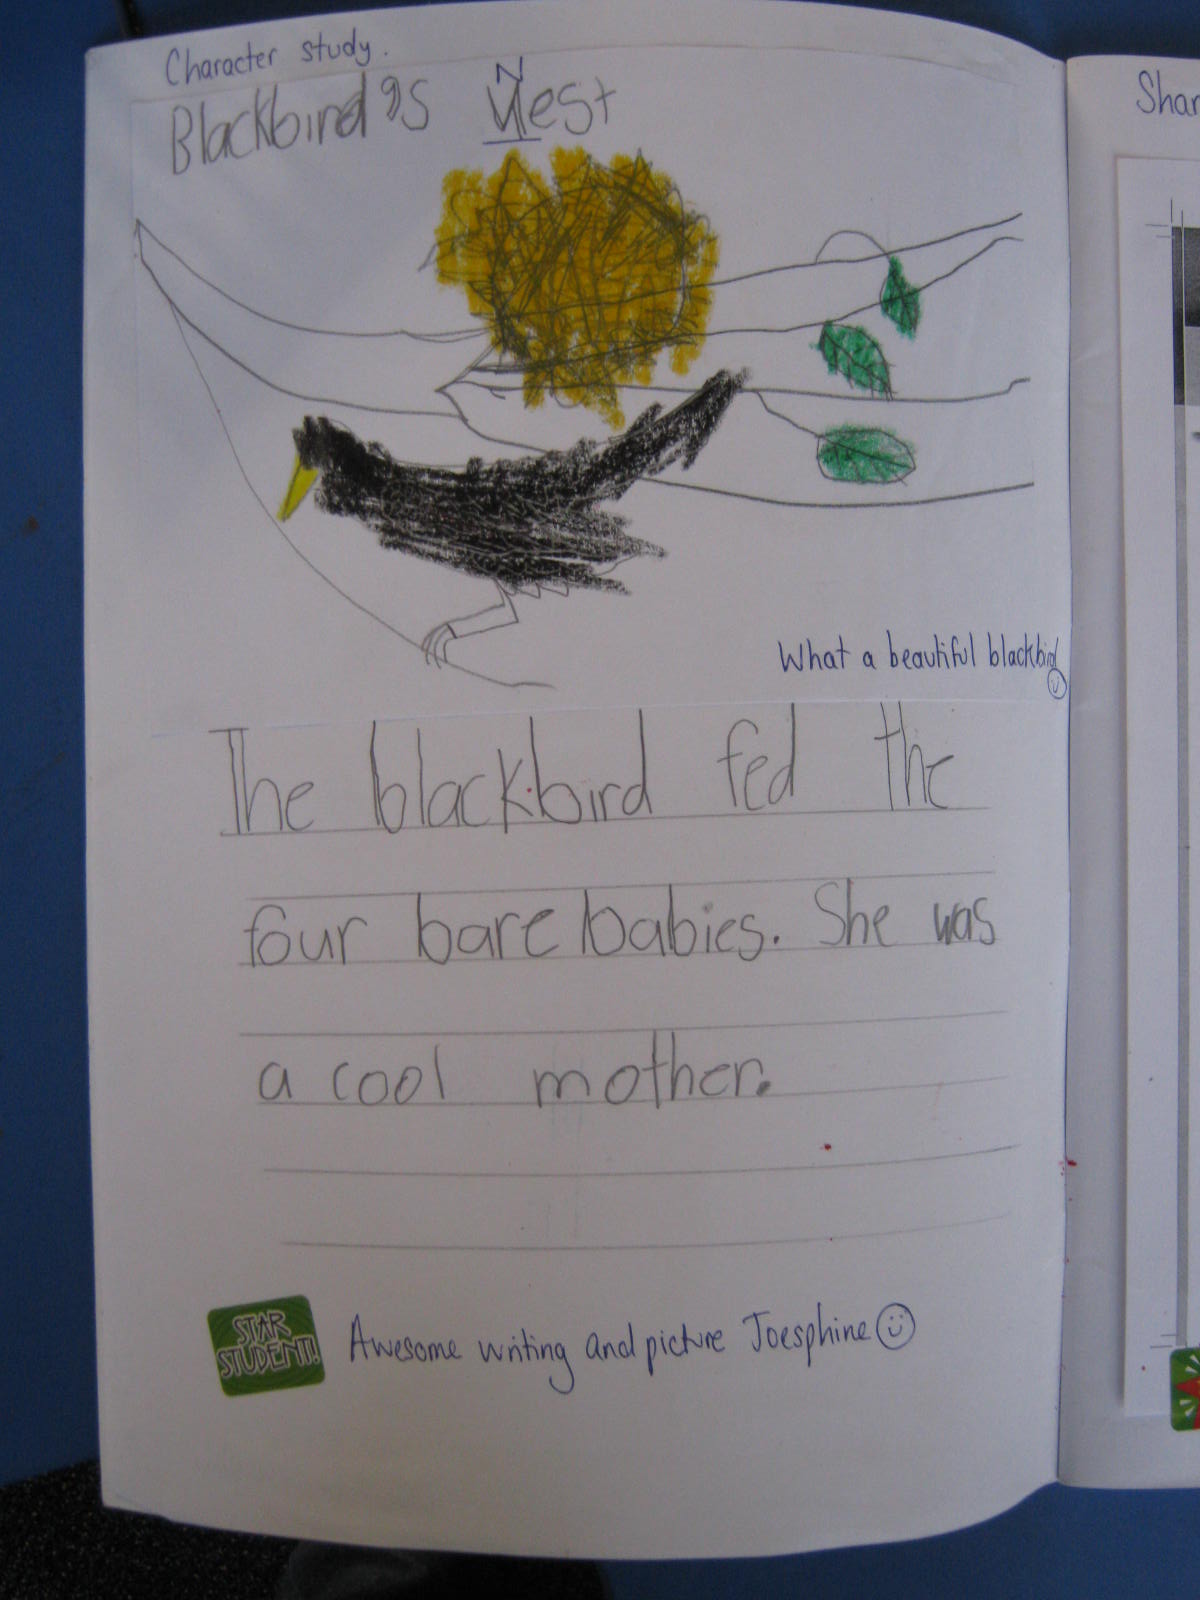 Character study.
Blackbird's Nest
What a beautiful blackbird
The blackbird fed the
four bare babies. She was
a cool mother.
STAR
STUDENT!
Awesome writing and picture Joesphine
Shar